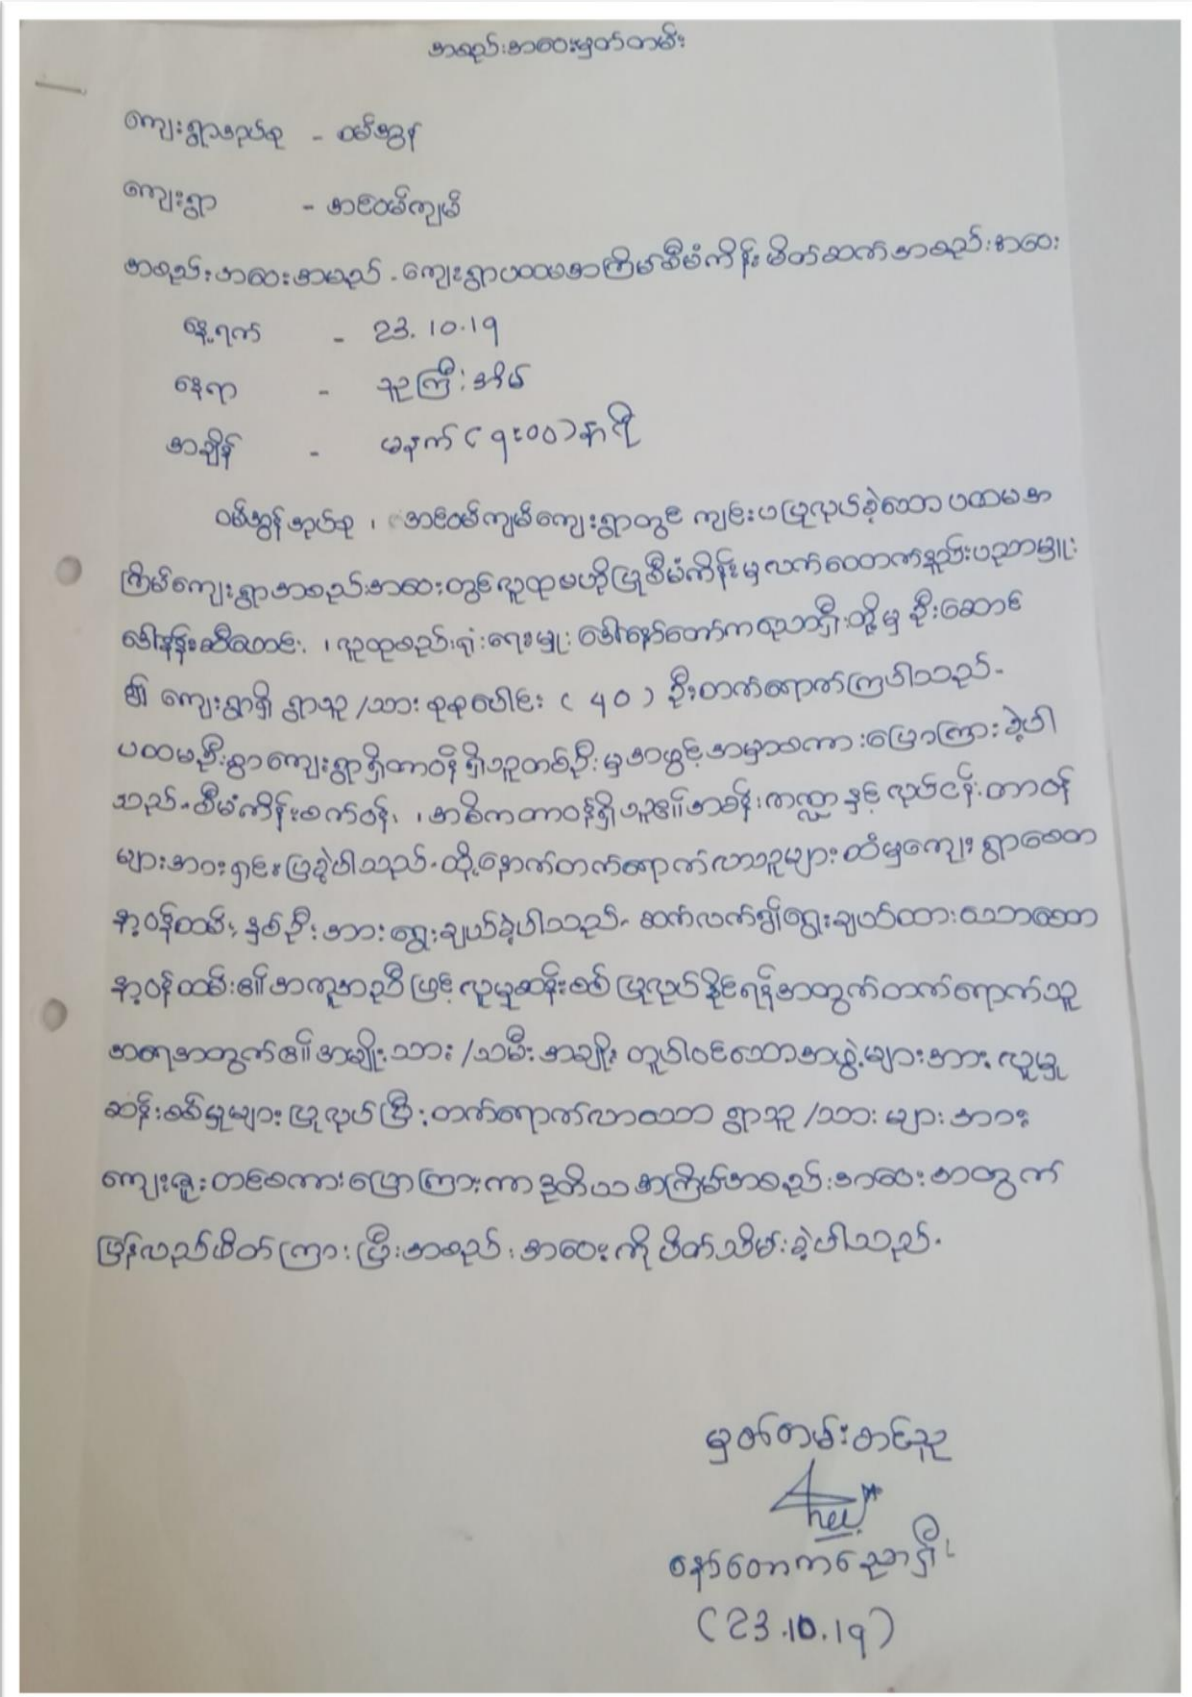 အစည်းအဝေးမှတ်တမ်း
ကျေးရွာအုပ်စု - ဝမ်အွန်
ကျေးရွာ - အင်ဝမ်ကျမ်
အစည်းအဝေးအမည် - ကျေးရွာပထမအကြိမ်စီမံကိန်းမိတ်ဆက်အစည်းအဝေး
နေ့ရက် - 23.10.19
နေရာ - သူကြီးအိမ်
အချိန် - မနက် (၇:၀၀) နာရီ
ဝမ်အွန်အုပ်စု ၊ အင်ဝမ်ကျမ်ကျေးရွာတွင် ကျင်းပပြုလုပ်ခဲ့သော ပထမအ
ကြိမ်ကျေးရွာအစည်းအဝေးတွင်လူထုဗဟိုပြုစီမံကိန်းမှလက်ထောက်နည်းပညာမှူး
ဒေါ်နန်းဆီဟောင်း ၊ လူထုစည်းရုံးရေးမှူး ဒေါ်နော်တော်ကညောရှီးတို့မှ ဦးဆောင်
၍ ကျေးရွာရှိ ရွာသူ/သား စုစုပေါင်း ( 40 ) ဦးတက်ရောက်ကြပါသည်-
ပထမဦးစွာကျေးရွာရှိတာဝန်ရှိသူတစ်ဦးမှအဖွင့်အမှာစကားပြောကြားခဲ့ပါ
သည်-စီမံကိန်းစက်ဝန်း ၊ အဓိကတာဝန်ရှိသူ၏အခန်းကဏ္ဍနှင့်လုပ်ငန်းတာဝန်
များအားရှင်းပြခဲ့ပါသည်-ထို့နောက်တက်ရောက်လာသူများထံမှကျေးရွာစေတ
နာ့ဝန်ထမ်းနှစ်ဦးအားရွေးချယ်ခဲ့ပါသည်- ဆက်လက်၍ရွေးချယ်ထားသောစေတ
နာ့ဝန်ထမ်း၏အကူအညီဖြင့်လူမှုဆန်းစစ်ပြုလုပ်နိုင်ရန်အတွက်တက်ရောက်သူ
အရေအတွက်၏အမျိုးသား/သမီးအချိုး တူပါဝင်သောအဖွဲ့များအား လူမှု
ဆန်းစစ်မှုများပြုလုပ်ပြီးတက်ရောက်လာသောရွာသူ/သားများအား
ကျေးဇူးတင်စကားပြောကြားကာဒုတိယအကြိမ်အစည်းအဝေးအတွက်
ပြန်လည်ဖိတ်ကြားပြီးအစည်းအဝေးကိုပိတ်သိမ်းခဲ့ပါသည်-
မှတ်တမ်းတင်သူ
နော်တောကညောရှီး
(23.10.19)